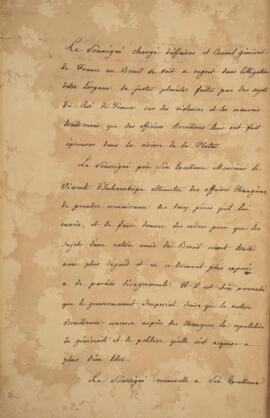 Le Soussigné chargé d'affaires et Consul Général
de France au Bresil se voit a regret dans l'obligation
d'être l'organe de justes plaintes faites par des sujets
du Roi de France sur les violences et les mauvais
traitemens que des officiers Brésiliens leur ont fait
éprouver dans la rivière de la Plata.
Le Soussigné prie Son Excellence Monsieur le
Vicomte d'Inhambupe Ministre des affaires Etrangères
de prendre connaissance des deux pièces qu'il lui
envoie, et de faire donner des ordres pour que les
sujets d'une nation amie du Bresil soient traités
avec plus d'égard et ne se trouvent plus exposés
a de pareils désagrémens. Il est bien persuadé
que le gouvernement Impérial désire que la nation
Brésilienne conserve auprès des Etrangers la réputation
de générosité et de politesse qu'elle s'est acquise a
plus d'un titre.
Le Soussigné renouvelle a Son Excellence